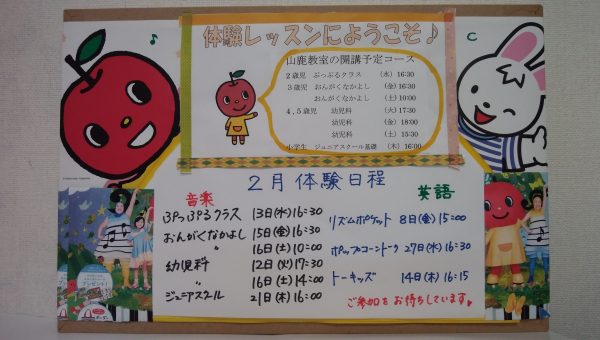 体験レッスンにようこそ♪
山鹿教室の開講予定コース
2歳児 ぷっぷるクラス (水) 16:30
3歳児 おんがくなかよし (金) 16:30
おんがくなかよし (土) 10:00
4,5歳児 幼児科 (火) 17:30
幼児科 (金) 18:00
幼児科 (土) 15:30
小学生 ジュニアスクール基礎 (木) 16:00
2月体験日程
音楽
ぷっぷるクラス 13日(水)16:30
おんがくなかよし 15日(金)16:30
〃 16日(土)10:00
幼児科 12日(火)17:30
〃 16日(土)14:00
ジュニアスクール 21日(木)16:00
英語
リズムポケット 8日(金)15:00
ポップコーントーク 27日(水)16:30
トーキッズ 14日(木)16:15
ご参加をお待ちしています